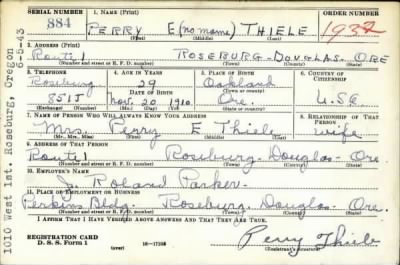 SERIAL NUMBER 1. NAME (Print) ORDER NUMBER
884 PERRY E (no name) THIELE 1932
(First) (Middle) (Last)
3. ADDRESS (Print)
Route 1 ROSEBURG - DOUGLAS - ORE
(Number and street or R. F. D. number) (Town) (County) (State)
3. TELEPHONE 4. AGE IN YEARS 5. PLACE OF BIRTH 6. COUNTRY OF CITIZENSHIP
Roseburg 29 Oakland
DATE OF BIRTH
851J Nov. 20 1910 Ore. U.S.A
(Exchange) (Number) (Mo.) (Day) (Yr.) (State or country)
7. NAME OF PERSON WHO WILL ALWAYS KNOW YOUR ADDRESS 8. RELATIONSHIP OF THAT PERSON
Mrs. Perry E Thiele wife
(Mr., Mrs., Miss) (First) (Middle) (Last)
9. ADDRESS OF THAT PERSON
Route 1 Roseburg - Douglas - Ore
(Number and street or R. F. D. number) (Town) (County) (State)
10. EMPLOYER'S NAME
Roland Parker
11. PLACE OF EMPLOYMENT OR BUSINESS
Perkins Bldg. Roseburg Douglas - Ore.
(Number and street or R. F. D. number) (Town) (County) (State)
I AFFIRM THAT I HAVE VERIFIED ABOVE ANSWERS AND THAT THEY ARE TRUE.
REGISTRATION CARD
D. S. S. Form 1 (over) Perry Thiele
(Registrant's signature)
1010 West Int. Roseburg, Oregon
6-5-43